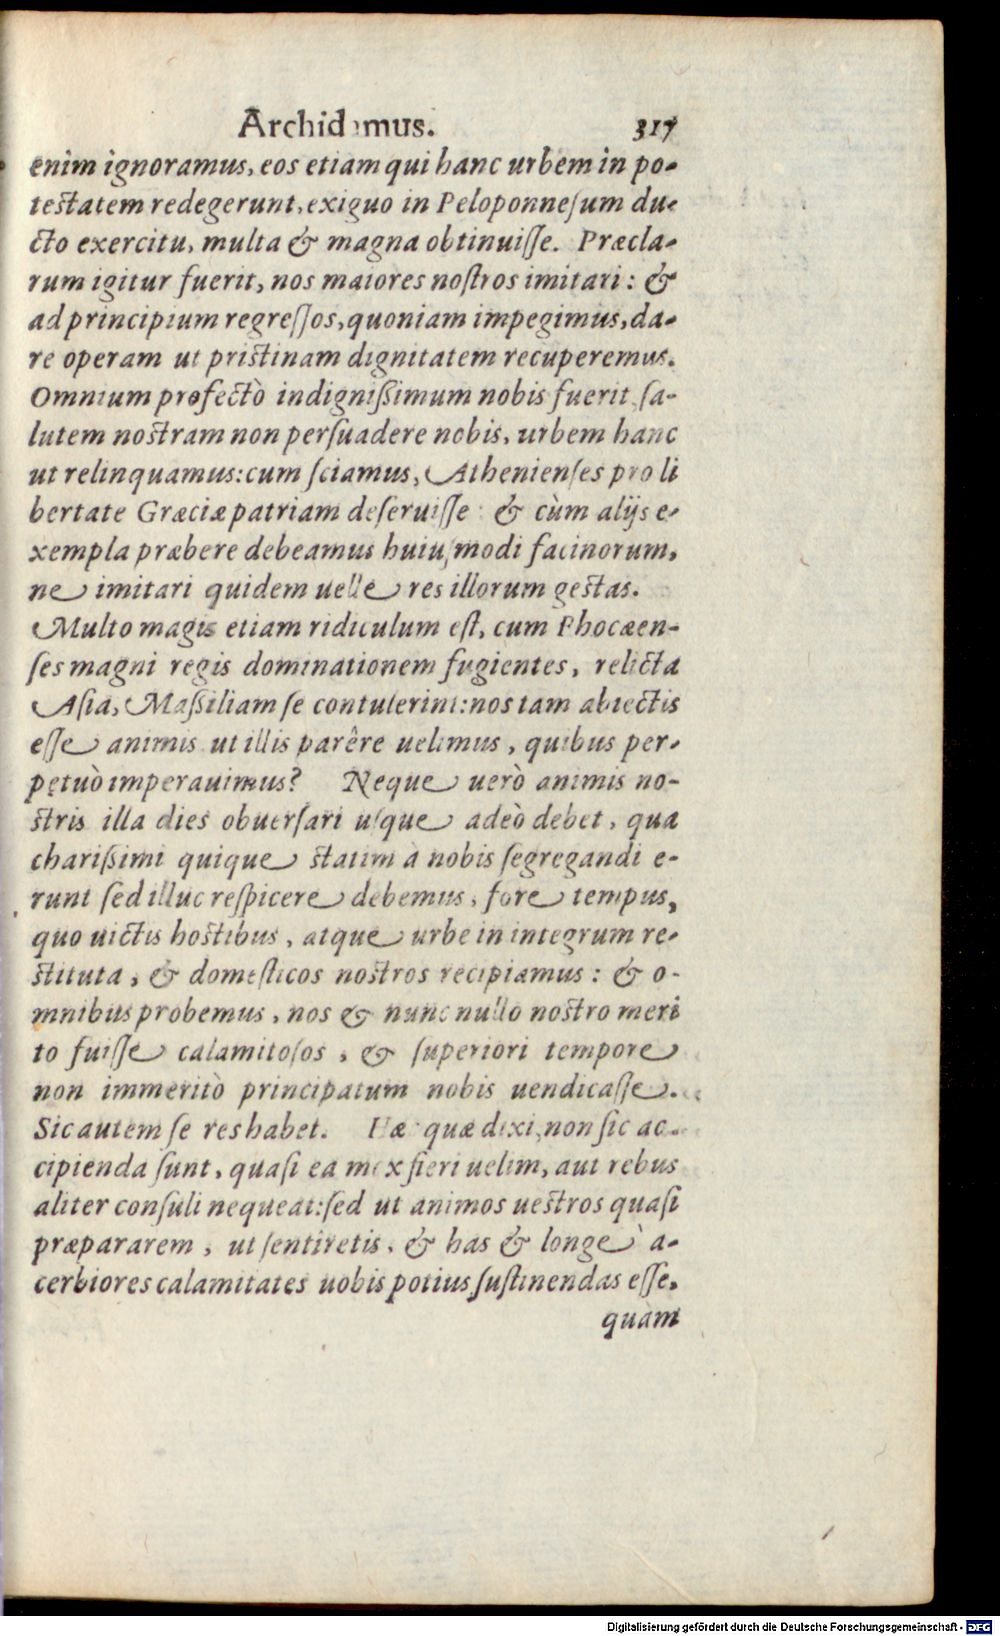 Archidamus. 317
enim ignoramus, eos etiam qui hanc urbem in po-
testatem redegerunt, exiguo in Peloponnesum du-
cto exercitu, multa & magna obtinuisse. Præcla-
rum igitur fuerit, nos maiores nostros imitari: &
ad principium regressos, quoniam impegimus, da-
re operam ut pristinam dignitatem recuperemus.
Omnium profectò indignissimum nobis fuerit, sa-
lutem nostram non persuadere nobis, urbem hanc
ut relinquamus: cum sciamus, Athenienses pro li
bertate Græciæ patriam deseruisse: & cùm alijs e-
xempla præbere debeamus huiusmodi facinorum,
ne imitari quidem uelle res illorum gestas.
Multo magis etiam ridiculum est, cum Phocæen-
ses magni regis dominationem fugientes, relicta
Asia, Massiliam se contulerint: nos tam abiectis
esse animis ut illis parêre uelimus, quibus per-
petuò imperauimus? Neque uerò animis no-
stris illa dies obuersari usque adeò debet, qua
charissimi quique statim à nobis segregandi e-
runt sed illuc respicere debemus, fore tempus,
quo uictis hostibus, atque urbe in integrum re-
stituta, & domesticos nostros recipiamus: & o-
mnibus probemus, nos & nunc nullo nostro meri
to fuisse calamitosos, & superiori tempore
non immeritò principatum nobis uendicasse.
Sic autem se res habet. Hæc quæ dixi, non sic ac-
cipienda sunt, quasi ea mox fieri uelim, aut rebus
aliter consuli nequeat: sed ut animos uestros quasi
præpararem, ut sentiretis, & has & longè a-
cerbiores calamitates uobis potius sustinendas esse,
quàm
Digitalisierung gefördert durch die Deutsche Forschungsgemeinschaft - DFG